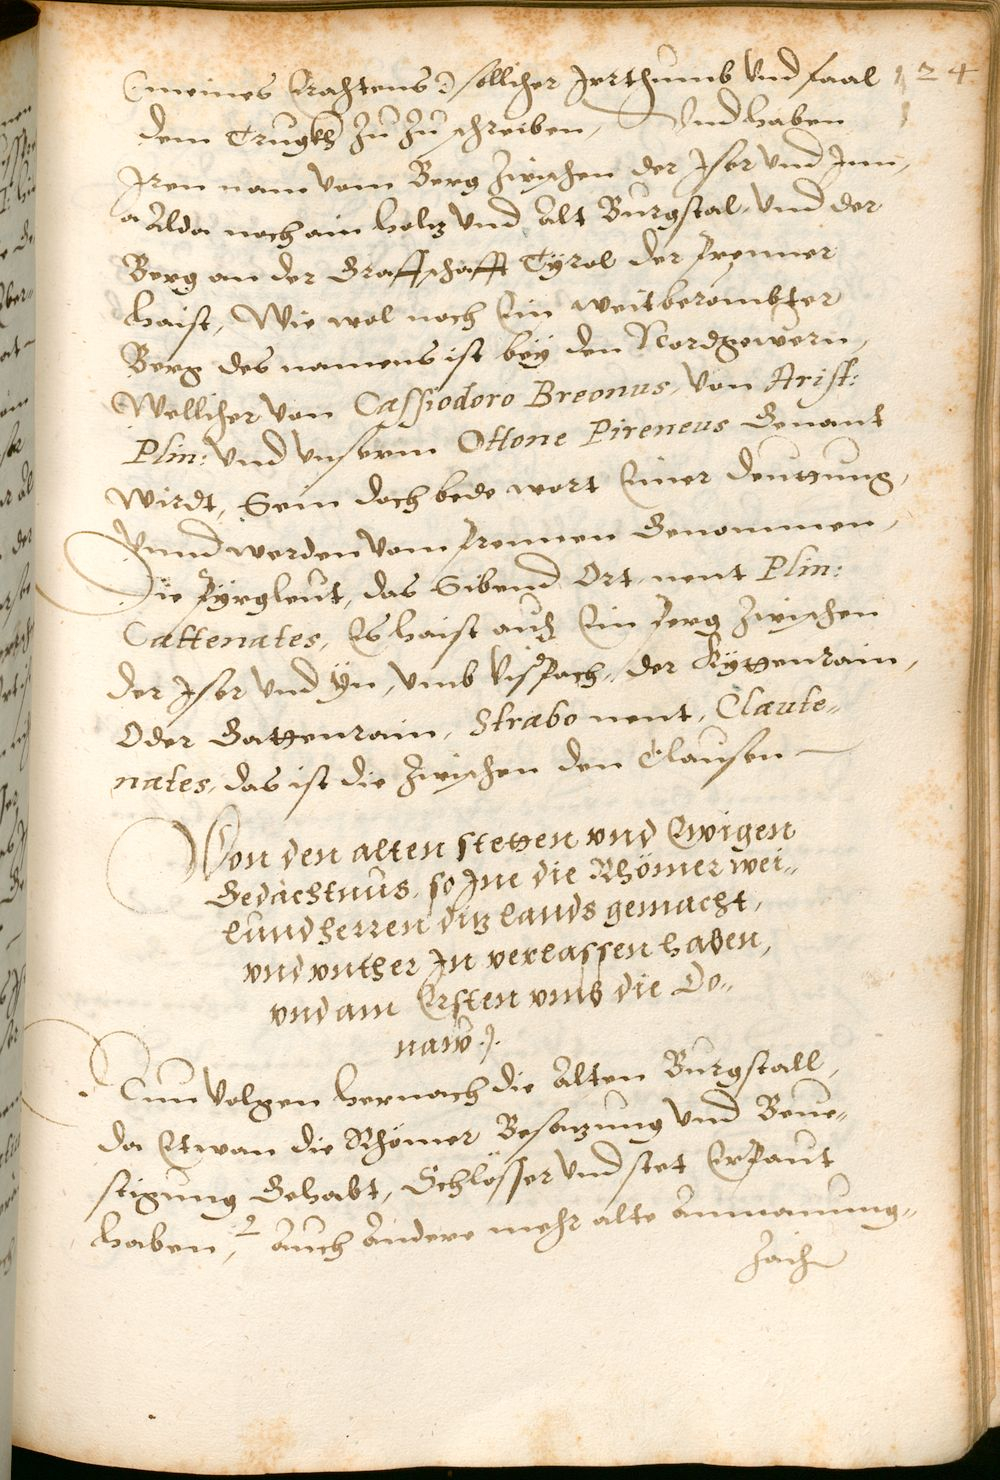 124
(meines Erachtens) sollicher Jrrthumb vnd faal
dem Trugkh zu Zu schreiben, Vnd haben
Jren nam vom Berg Zwischen der Jser vnd Jnn,
Alda noch ain holtz vnd Alt Burgstal, vnd der
Berg an der Graffschafft Tÿrol der Prenner
haist, Wie wol noch Ein weitberombter
Berg des namens ist beÿ den Nordgewern,
Wellicher von Cassiodoro Breonus, von Arist:
Plin: vnd vnserm Ottone Pireneus Genant
wirdt, Sein doch bede wort Einer deuttung,
Vnnd werden vom Prennen Genommen,
Die Pÿrgleut, das Sibend Ort, nent Plin:
Cattenates, Es haist auch Ein Perg Zwischen
der Jser vnd Yn, vmb Vispach, der Kÿttenrain,
Oder Gattenrain, Strabo nent, Claute„
nates, das ist die Zwischen den Clausen
Von den alten stetten vnd Ewigen
Gedächtnus, so Jne die Rhömer wei„
lund herren ditz lands gemacht,
vnd vnther Jn verlassen haben,
vnd am Ersten vmb die Do„
naw.
Nun volgen hernach die Alten Burgstall,
da Etwan die Rhömer Besatzung vnd Beue„
stigung Gehabt, Schlösser vnd stet Erpaut
haben, Auch Andere mehr alte Anmanung„
Zaich